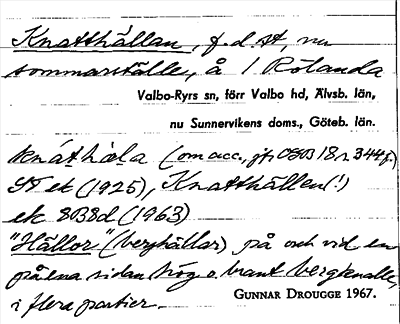 Knatthällan, f.d. st, nu
sommarställe, å 1 Rölanda
Valbo-Ryrs sn, förr Valbo hd, Älvsb. län,
nu Sunnervikens doms., Göteb. län.
(om acc., jfr OGB 18 s. 344 f.)
ek (1925), Knatthällen (!)
ek 8038d (1963)
"Hällor" (berghällar) på och vid en
på ena sidan hög o. brant bergknalle,
i flera partier.
GUNNAR DROUGGE 1967.